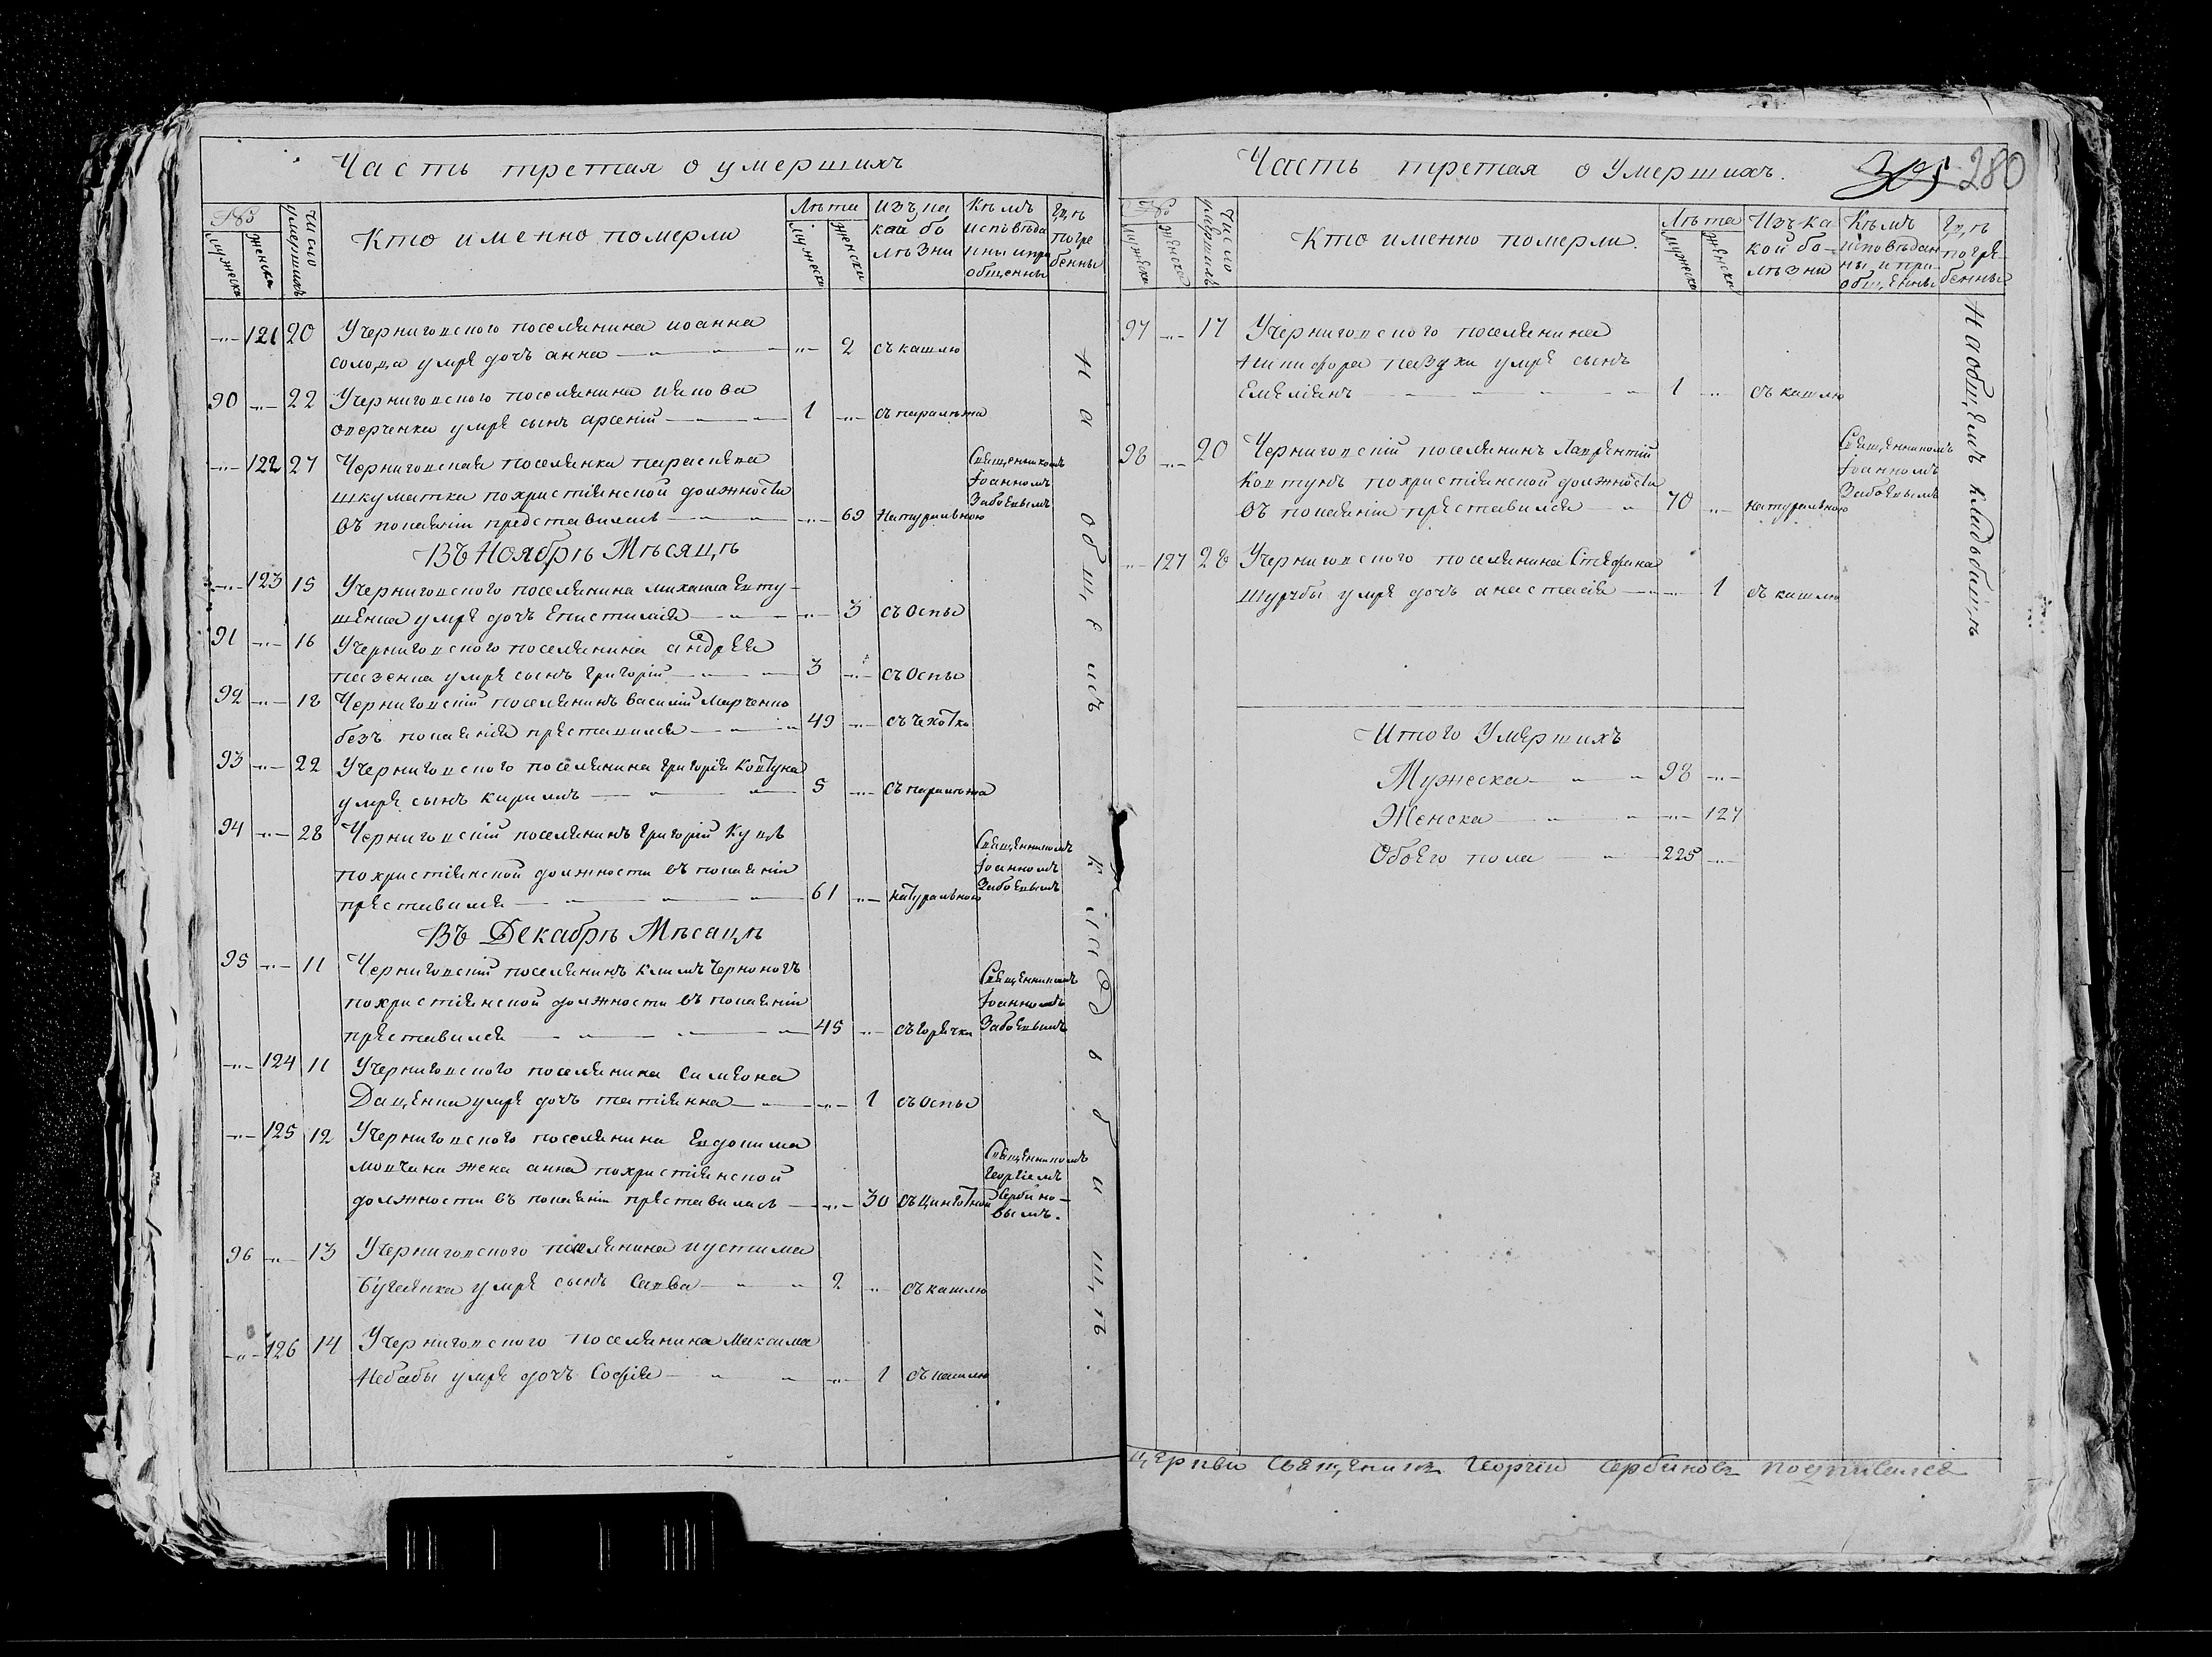 Часть третая о умершихъ
№
мужеска
женска
число умершихъ
Кто именно померли
Лѣта
мужеска
женска
Изъ какой болѣзни
Кѣмъ исповѣданы и приобщенны
Гдѣ погребенны
121 20 У черниговского поселянина иоанна
солода умре дочь анна 2 съ кашлю
90 22 У черниговского поселянина иякова
оверченка умре сынъ арсеній 1 съ паралѣжа
122 27 Черниговская поселянка параскева
шкуматка по христіянской должности
въ покаяніи представилась 69 Натуральною
Священникомъ
Іоанномъ
Забоевымъ
Въ Ноябрѣ Мѣсяцѣ
123 15 У черниговского поселянина михаила Евту-
шенка умре дочь Епистимія 3 съ Оспы
91 16 У черниговского поселянина андрея
пазенка умре сынъ григорій 3 съ Оспы
92 18 Черниговскій поселянинъ василій Марченко
безъ покаянія преставился 49 съ чехотко
93 22 У черниговского поселянина григорія Ковтуна
умре сынъ кирилъ 5 съ паралѣжа
94 28 Черниговскій поселянинъ григорій Куць
по христіянской должности въ покаяніи
преставился 61 натуральною
Священникомъ
Іоанномъ
Забоевымъ
Въ Декабрѣ Мѣсацѣ
95 11 Черниговскій поселянинъ климъ Черноногъ
по христіянской должности въ покаяніи
преставился 45 съ горячки
Священникомъ
Іоанномъ
Забоевымъ
124 11 У черниговского поселянина Симеона
Даценка умре дочь татіянна 1 съ оспы
125 12 У черниговского поселянина Евдокима
мовчана жена анна по христіянской
должности въ покаяніи преставилась 30 съ цинготной
Священникомъ
Георгіемъ
Сербино-
вымъ.
96 13 У черниговского поселянина иустима
Бугаянка умре сынъ Савва 2 съ кашлю
126 14 У черниговского поселянина Максима
Небабы умре дочь Софія 1 съ кашлю
На общемъ кладъбищѣ
Часть третая о умершихъ.
305 280
№
мужеска
женска
Число умершихъ
Кто именно померли.
Лѣта
мужеска
женска
Изъ какой болѣзни
Кѣмъ исповѣданны и приобщенны
Гдѣ погребенны
97 17 У черниговского поселянина
Никифора пазухи умре сынъ
Емеліянъ 1 съ кашлю
98 20 Черниговскій поселянинъ Лаврентій
Ковтунъ по христіянской должности
въ покаяніи преставился 70 натуральною
Священникомъ
Іоанномъ
Забоевымъ
127 28 У черниговского поселянина Стефана
шурбы умре дочь анастасія 1 съ кашлю
На общемъ кладъбищѣ
Итого Умершихъ
Мужеска 98
Женска 127
Обоего пола 225
церкви Священникъ Георгій Сербиновъ подписался